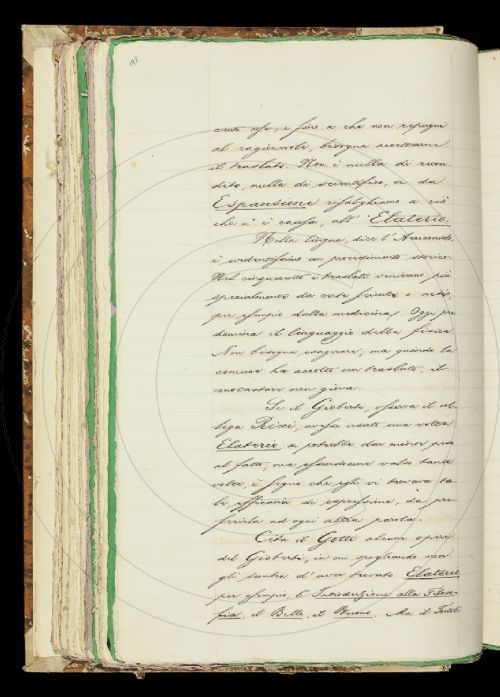 188
certe cose, e fino a che non repugni
al ragionevole, bisogna accettarne
il traslato. Non è nulla di recon-
dito, nulla di scientifico, se da
Espansione risalghiamo a ciò
che n'è causa, all' Elaterio.
Nella lingua, dice l'
è evidentissimo un procedimento storico.
Nel cinquecento i traslati venivano più
specialmente da certe scienze e arti,
per esempio dalla medicina. Oggi pre
domina il linguaggio della fisica.
Non bisogna esagerare, ma quando la
comune ha accettato un traslato, il
contrastare non giova.
Se il Gioberti, osserva il col-
lega Ricci, avesse usato una volta
Elaterio, si potrebbe dar minor peso
al fatto; ma essendosene valso tante
volte, è segno che egli vi trovava ta-
le efficacia di espressione, da pre-
ferirla ad ogni altra parola.
Cita il Gotti alcune opere
del Gioberti, in cui spogliando non
gli sembra d'aver trovato Elaterio,
per esempio, l'Introduzione alla Filoso-
fia, il Bello, il Buono. Ma il